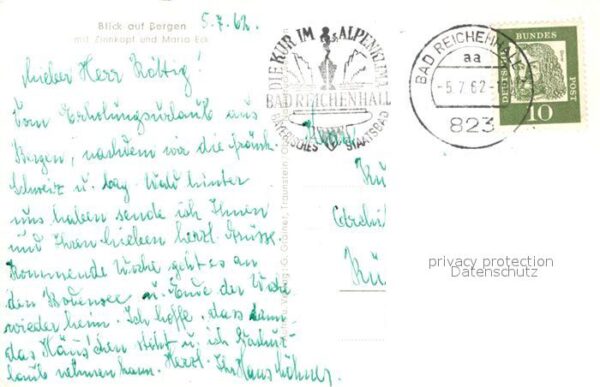 Blick auf Bergen
mit Zinnkopf und Maria Eck
5.7.62.
Lieber Herr Röttig!
Vom Erholungsurlaub aus
Bergen, nachdem wir die fränk.
Schweiz u. bay. Wald hinter
uns haben sende ich Ihnen
und Ihren Lieben herzl. Grüsse.
Kommende Woche geht es an
den Bodensee u. Ende der Woche
wieder heim. Ich hoffe, dass dann
das Häus'chen steht u. ich
laub nehmen kann. Herzl. Ihr Hans
DIE KUR IM ALPENKLIMA
BAD REICHENHALL
BAYERISCHES STAATSBAD
BAD REICHENHALL
aa
-5.7.62-
823
DEUTSCHE BUNDESPOST
10
Traunstein
privacy protection
Datenschutz